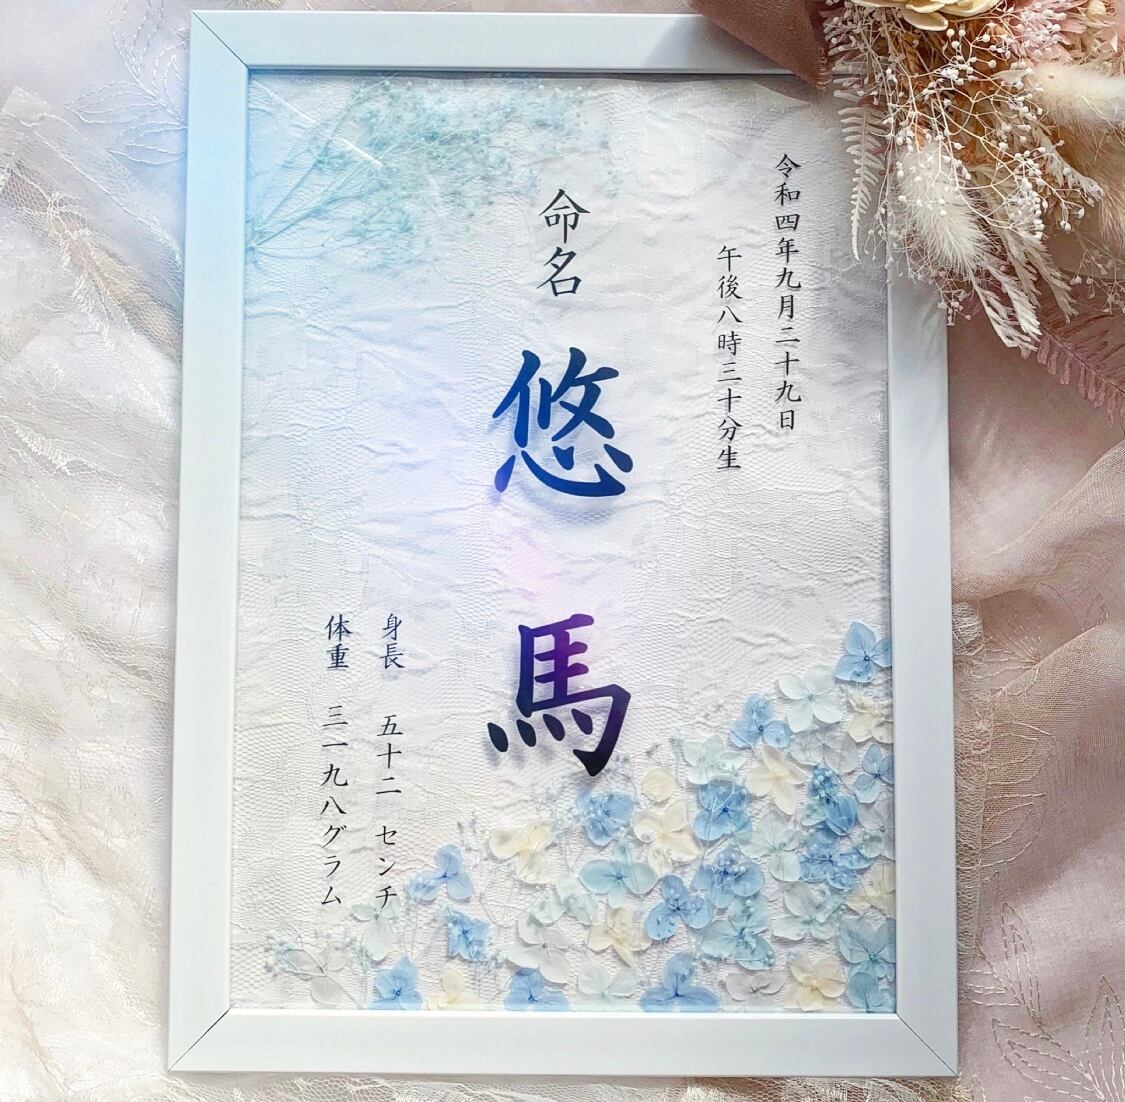 令和四年九月二十九日
午後八時三十分生
命名
悠馬
身長 五十二 センチ
体重 三一九八グラム